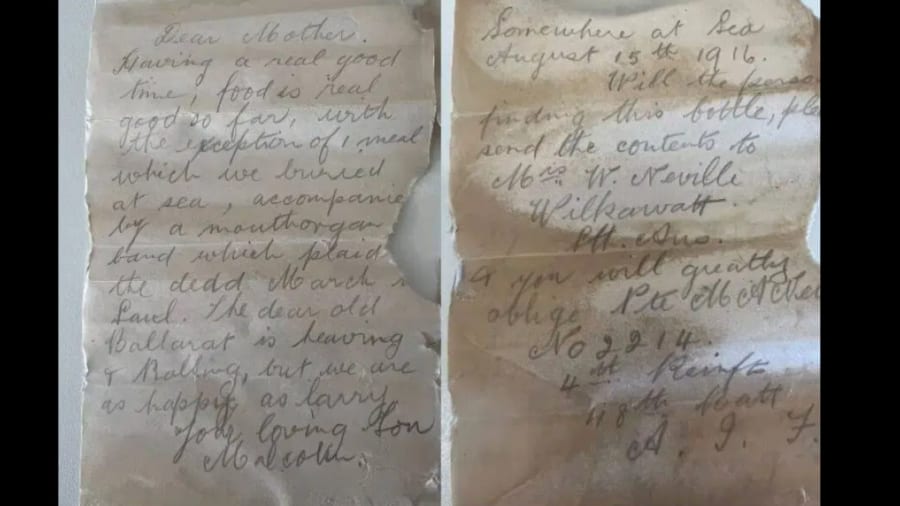 Dear Mother.
Having a real good
time, food is real
good so far, with
the exception of 1 meal
which we buried
at sea, accompanie
by a mouthorgan
band which plaid
the dedd March
Saul. The dear old
Ballarat is heaving
& Rolling, but we are
as happy as larry.
Your loving Son
Malcolm.
Somewhere at Sea
August 15th 1916.
Will the perso
finding this bottle, ple
send the contents to
Mrs W. Neville
Wilkawatt.
Sth. Aus.
& you will greatly
oblige Pte M A Nev
No 2214.
4th Reinfts
48th Batt
A. I. F.